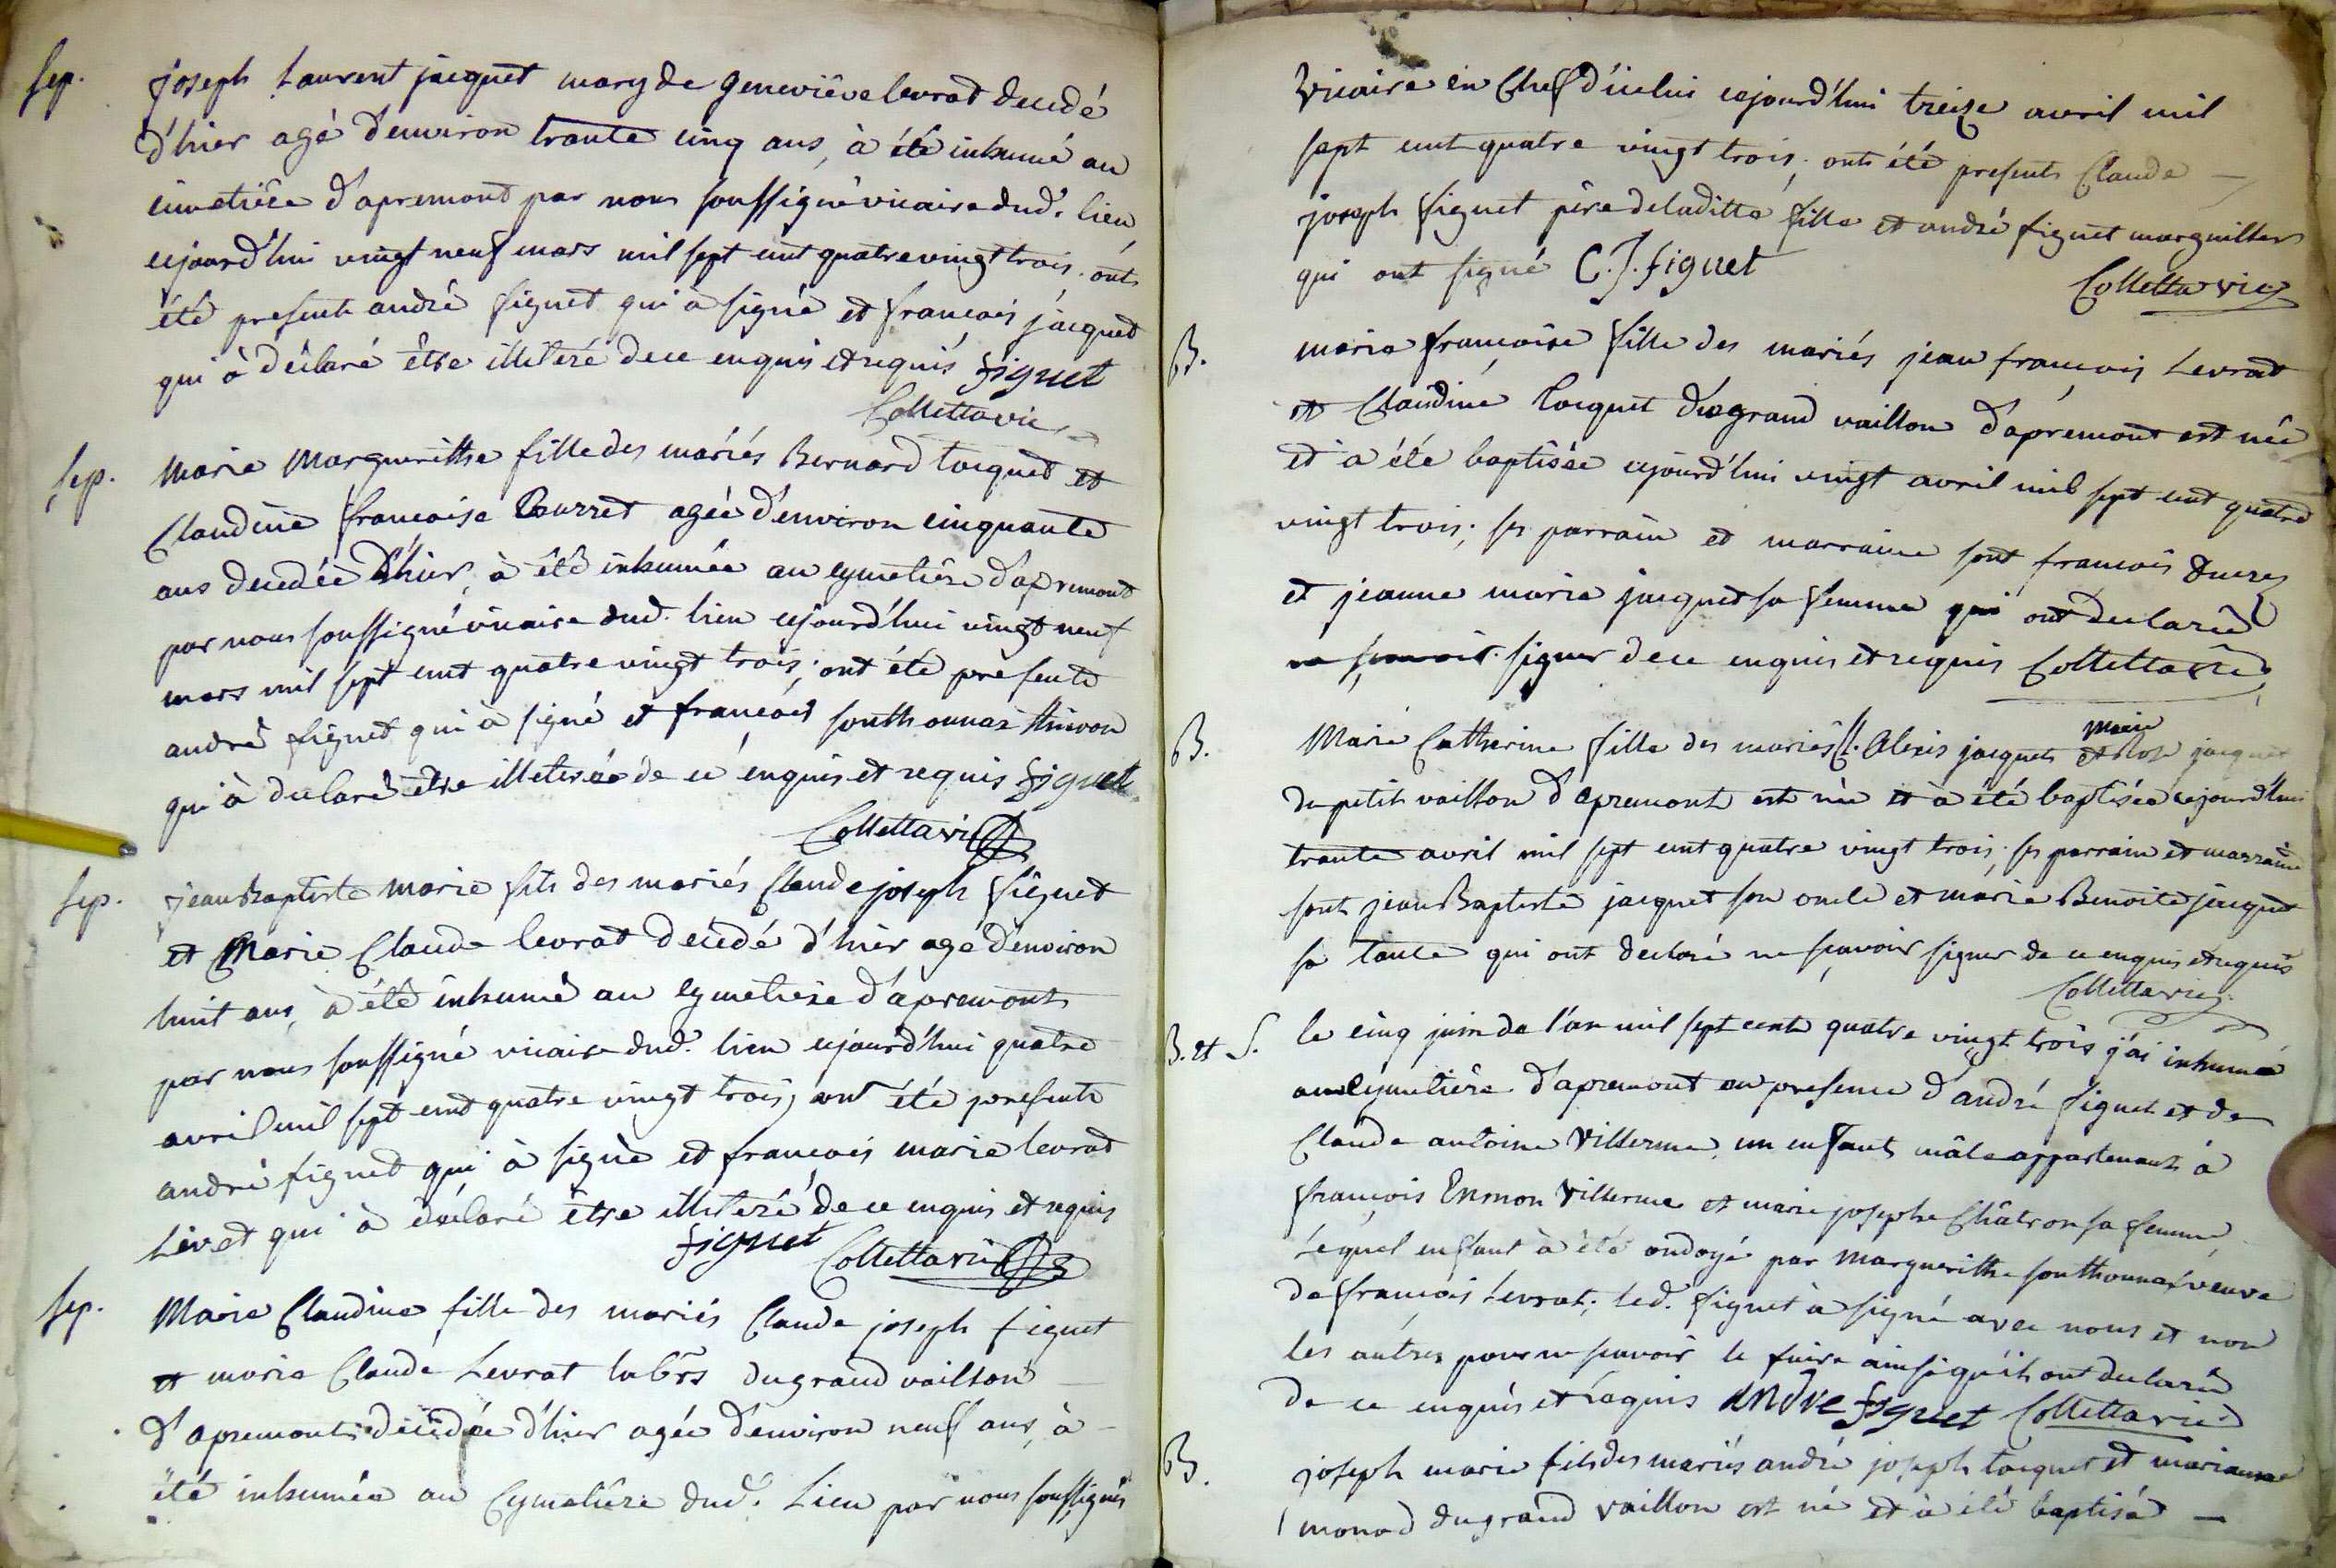 Sep. joseph Laurent jacquet mary de geneviève levrat decedé
d'hier agé d'environ trante cinq ans, à été inhumé au
cimetière d'apremont par nous soussigné vicaire dud. lieu
cejourd'hui vingt neuf mars mil sept cent quatre vingt trois. ont
été presents andré figuet qui à signé et francois jacquet
qui à déclaré être illiteré de ce enquis et requis figuet
Colletta vic
Sep. Marie Margueritte fille des mariés Bernard tocquet et
Claudine francoise agée d'environ cinquante
ans decedée d'hier, à été inhumée au cymetière d'apremont
par nous soussigné vicaire dud. lieu cejourd'hui vingt neuf
mars mil sept cent quatre vingt trois; ont été presents
andré figuet qui à signé et francois southonnax
qui à declaré être illeteré de ce enquis et requis figuet
Colletta vic
Sep. jean Baptiste Marie fils des mariés Claude joseph figuet
et Marie Claude levrat decedé d'hier agé d'environ
huit ans, à été inhumé au cymetiere d'apremont
par nous soussigné vicaire dud. lieu cejourd'hui quatre
avril mil sept cent quatre vingt trois, ont été presents
andré figuet qui à signé et francois marie levrat
Livet qui à déclaré être illiteré de ce enquis et requis
figuet Colletta vic
Sep. Marie Claudine fille des mariés Claude joseph figuet
et marie Claude Levrat labrs du grand vaillon
d'apremont decedée d'hier agée d'environ neuf ans, à
été inhumée au Cymetière dud. Lieu par nous soussignés
Vicaire en Chef d'icelui cejourd'hui treize avril mil
sept cent quatre vingt trois; onts été presents Claude
joseph figuet père de laditte fille et andré figuet marguillers
qui ont signé C. J. figuet
Colletta vic
B. marie françoise fille des mariés jean françois Levrat
et Claudine tocquet du grand vaillon d'apremont est née
et a été baptisée cejourd'hui vingt avril mil sept cent quatre
vingt trois; ses parrain et marraine sont francois
et jeanne marie jacquet sa femme qui ont declaré
ne sçavoir signer de ce enquis et requis Colletta vic
B. Marie Catherine fille des mariés Cl. Alexis jacquet et
Marie
Rose jacquet
du petit vaillon d'apremont est née et à été baptisée cejourd'hui
trante avril mil sept cent quatre vingt trois; ses parrain et marraine
sont jean Baptiste jacquet son oncle et marie Benoite jacquet
sa tante qui ont declaré ne sçavoir signer de ce enquis et requis
Colletta vic
B. et S. le cinq juin de l'an mil sept cents quatre vingt trois j'ai inhumé
au cymetière d'apremont en presence d'andré figuet et de
Claude antoine Villerme, un enfant mâle appartenant à
françois Enmon Villerme et marie josephe Châtron sa femme,
Lequel enfant à été ondoyé par Margueritte southonnax veuve
de françois Levrat; led. figuet à signé avec nous et non
les autres pour ne sçavoir le faire ainsi qu'ils ont declaré
de ce enquis et requis andre figuet Colletta vic
B. joseph marie fils des mariés andré joseph tocquet et marianne
monod du grand vaillon est né et à été baptisé